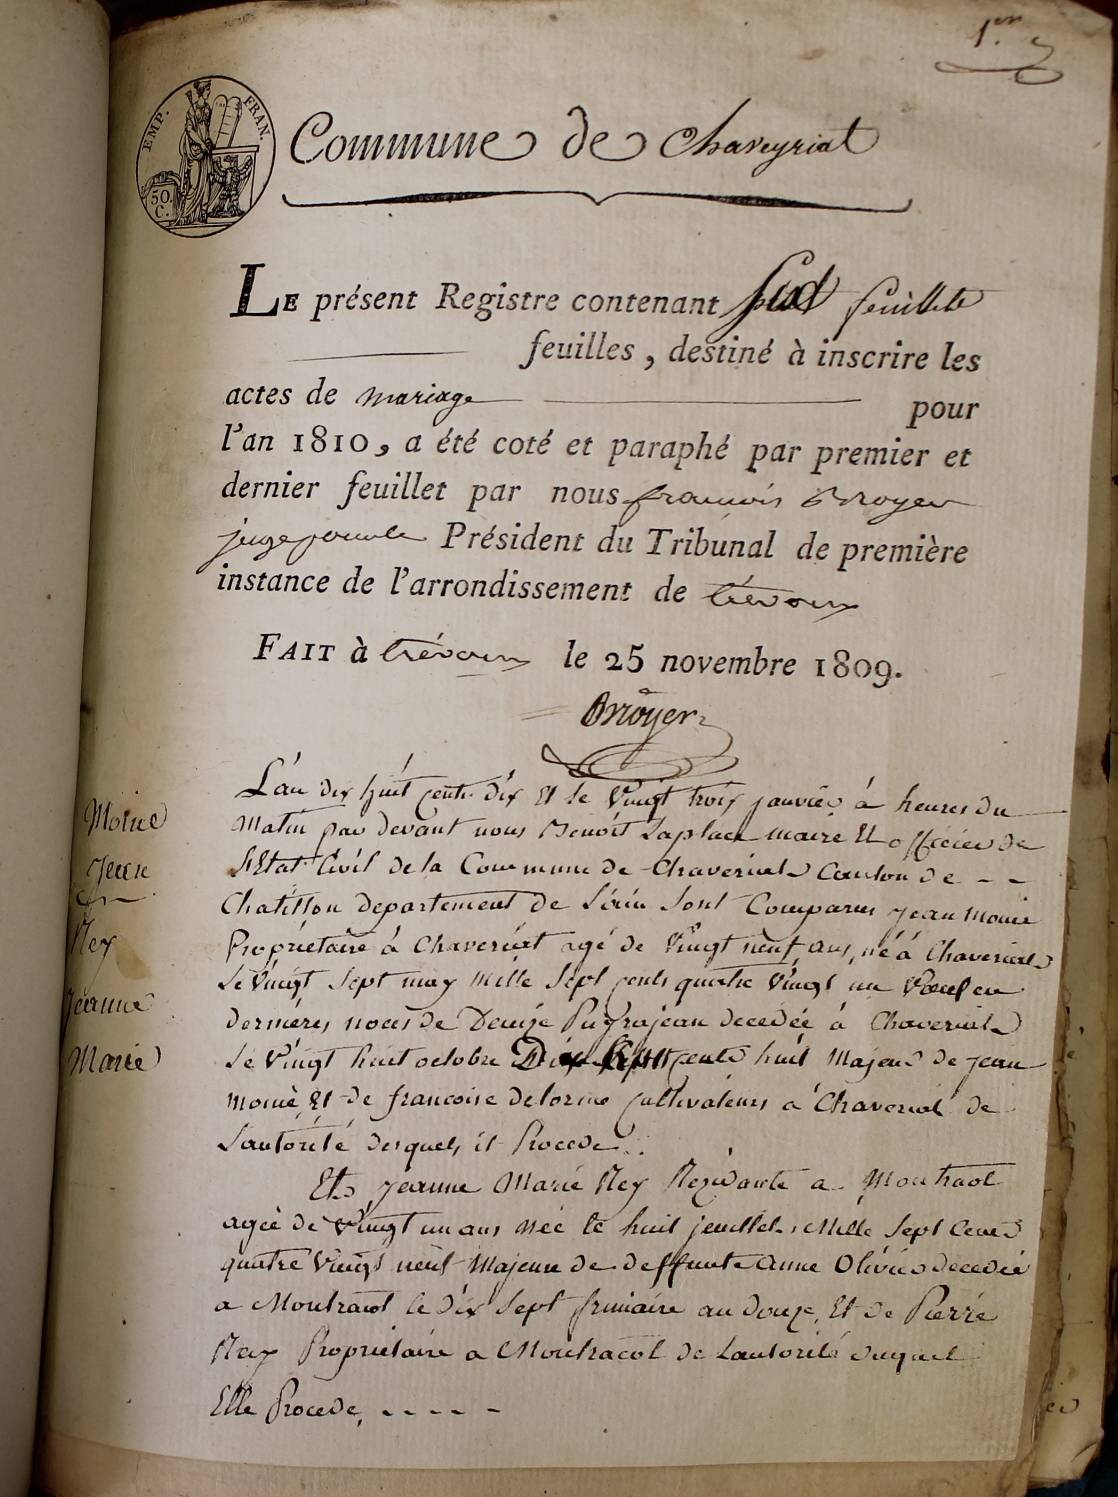 1er
EMP. FRAN.
50. C.
Commune de Chaveyriat
LE présent Registre contenant feuillets
feuilles, destiné à inscrire les
actes de mariage pour
l'an 1810, a été coté et paraphé par premier et
dernier feuillet par nous francois Brroyer
juge Président du Tribunal de première
instance de l'arrondissement de trévoux
FAIT à trévoux le 25 novembre 1809.
Brroyer
L'an dix huit cents dix Et le Vingt trois janvier à heures du
Matin par devant nous Benoît Laplace maire Et officier de
l'Etat Civil de la Commune de Chaveriat Canton de - -
Chatillon departement de L'ain Sont Comparus jean Moine
Propriétaire à Chaveriat agé de Vingt neuf ans, né à Chaveriat
Le Vingt Sept may Mille Sept cents quatre Vingt un Veuf en
dernieres noces de Denize Puy frajean decedée à Chaveriat
Le Vingt huit octobre Dix cents huit Majeur de jean
Moine Et de francoise delorme Cultivateurs a Chaveriat de
Lautorité desquels il Procede
Et jeanne Marie Ney Rezidante a Montracol
agée de Vingt un ans Née le huit jeuillet Mille Sept Cent
quatre Vingt neuf Majeure de deffunte Anne Olivier decedée
a Montracol le dix Sept frimaire an douze, Et de Pierre
Ney Proprietaire a Montracol de Lautorité duquel
Elle Procede, - - - - -
Moine
Jean
Ney
Jeanne
Marie